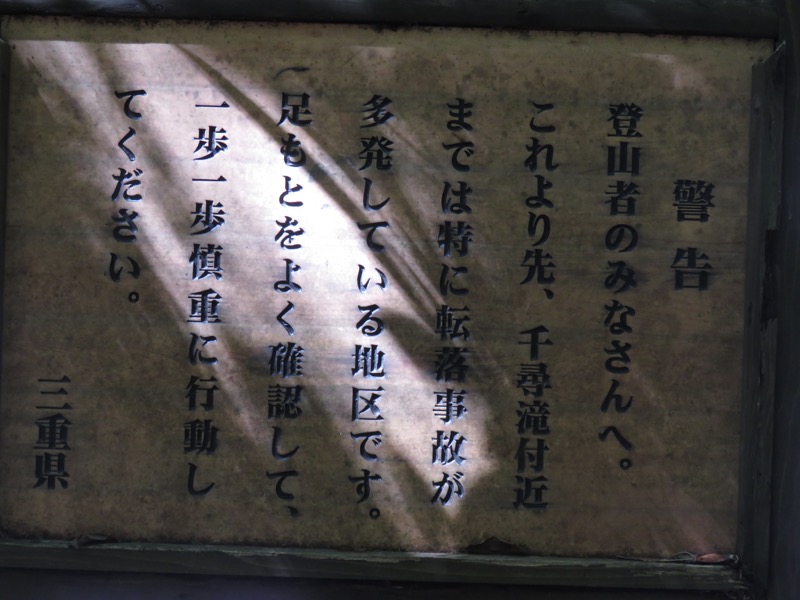 警告
登山者のみなさんへ。
これより先、千尋滝付近
までは特に転落事故が
多発している地区です。
足もとをよく確認して、
一歩一歩慎重に行動し
てください。
三重県